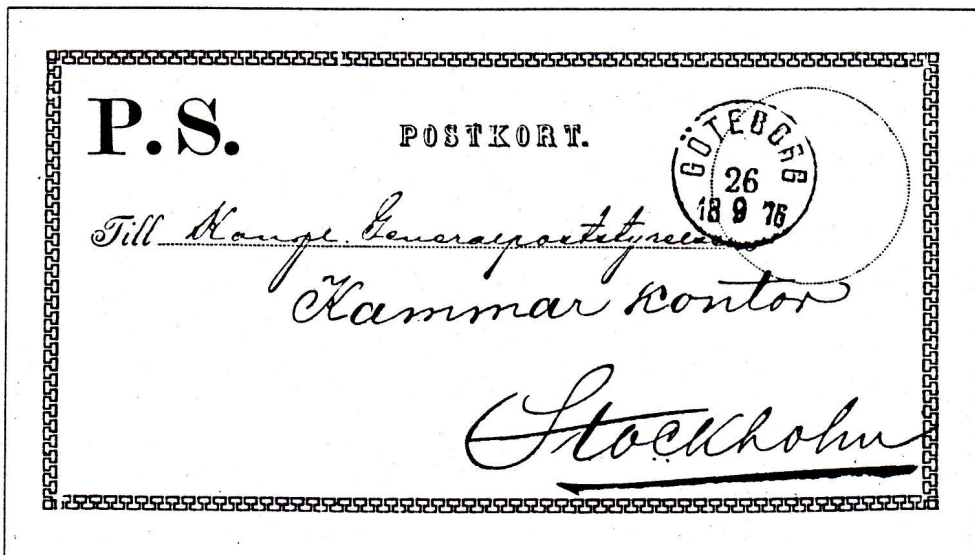 P.S.
POSTKORT.
GÖTEBORG
26
18 9 76
Till Kongl. Generalpoststyrelsens
Kammar kontor
Stockholm